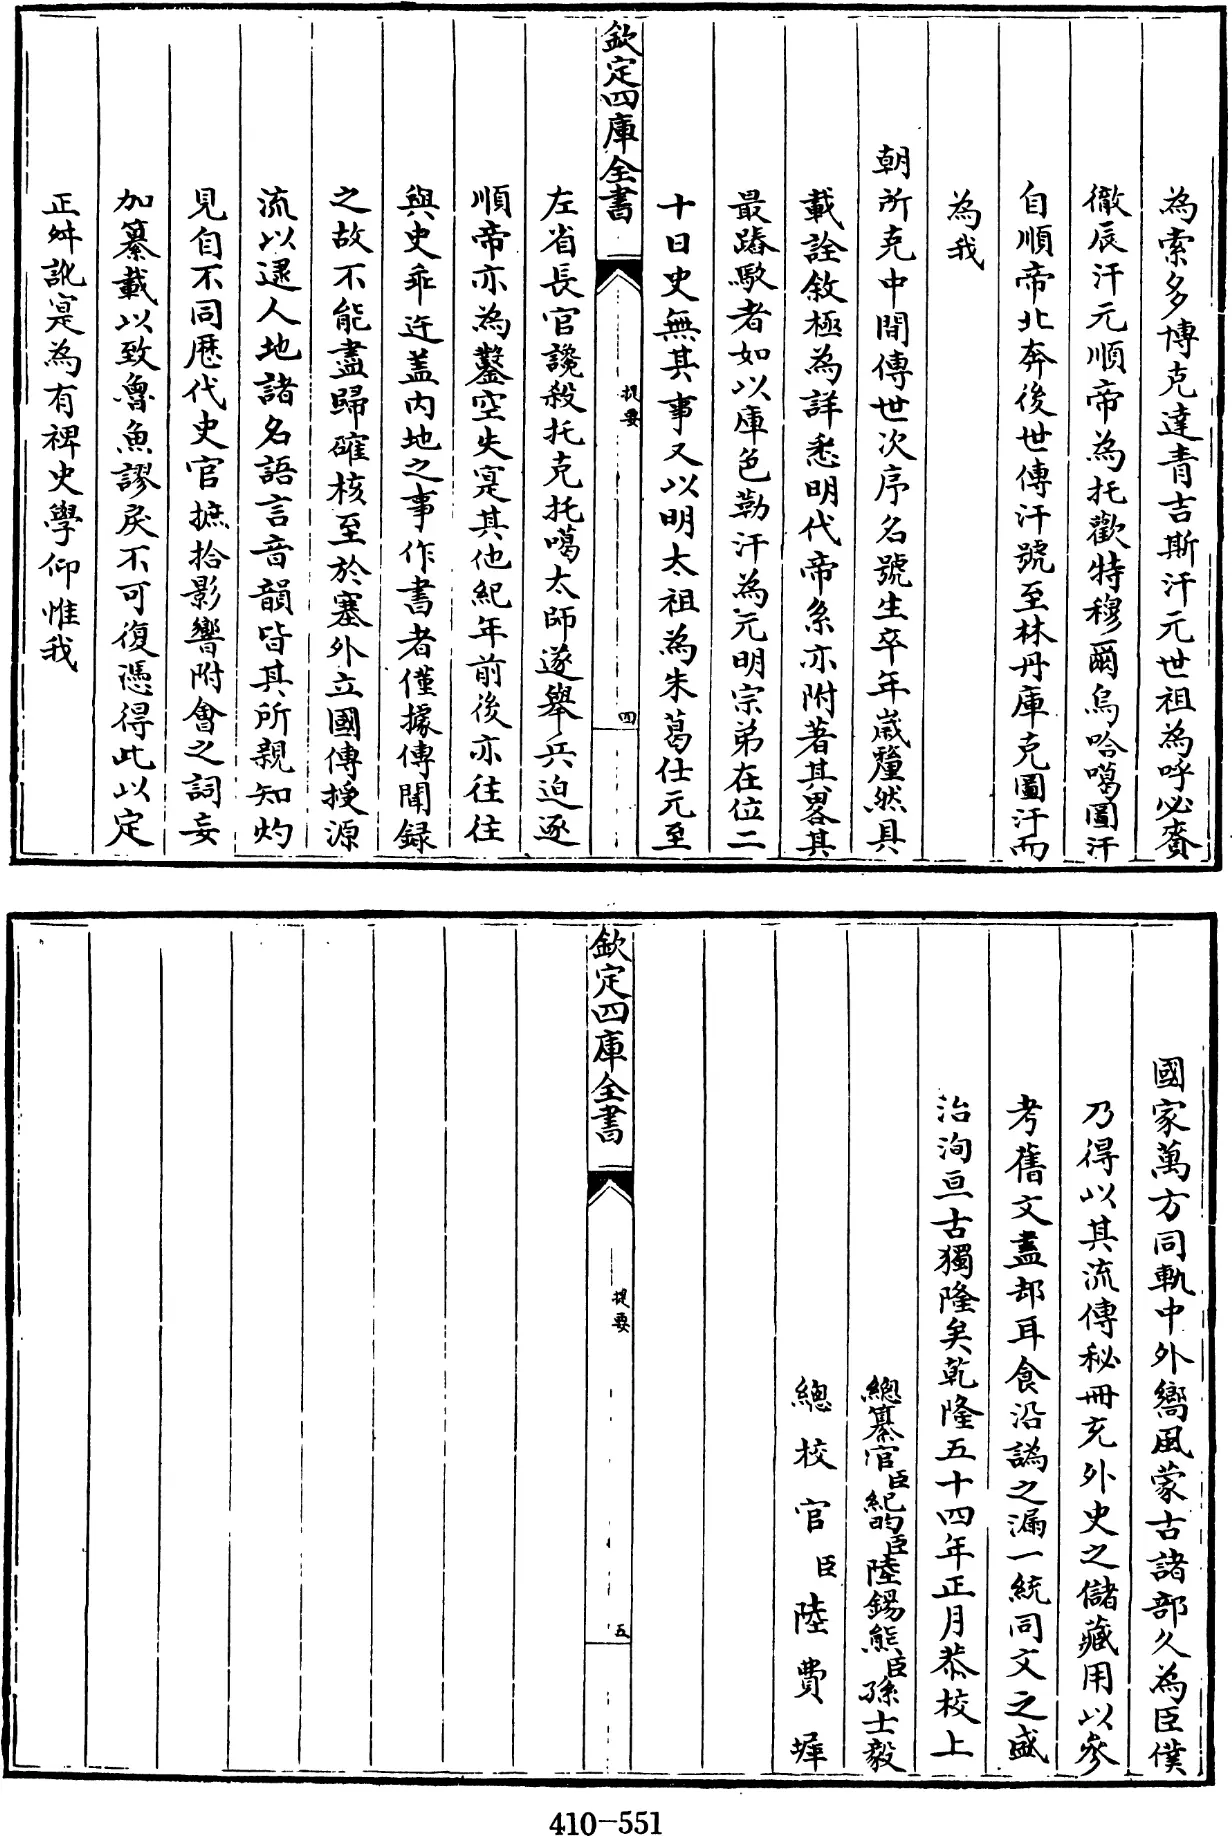 為索多博克達青吉斯汗元世祖為呼必賚
徹辰汗元順帝為托歡特穆爾烏哈噶圖汗
自順帝北奔後世傳汗號至林丹庫克圖汗而
為我
朝所克中間傳世次序名號生卒年歲釐然具
載詮敘極為詳悉明代帝系亦附著其畧其
最踳駮者如以庫色勒汗為元明宗弟在位二
十日史無其事又以明太祖為朱葛仕元至
欽定四庫全書
提要
四
左省長官讒殺托克托噶太師遂舉兵迫逐
順帝亦為鑿空失寔其他紀年前後亦往往
與史乖迕盖内地之事作書者僅據傳聞録
之故不能盡歸確核至於塞外立國傳授源
流以逮人地諸名語言音韻皆其所親知灼
見自不同歴代史官摭拾影響附會之詞妄
加纂載以致魯魚謬戾不可復憑得此以定
正舛訛寔為有裨史學仰惟我
國家萬方同軌中外嚮風蒙古諸部久為臣僕
乃得以其流傳秘冊充外史之儲藏用以參
考舊文盡却耳食沿譌之漏一統同文之盛
治洵亘古獨隆矣乾隆五十四年正月恭校上
總纂官臣紀昀臣陸錫熊臣孫士毅
總校官臣陸費墀
欽定四庫全書
提要
五
410-551